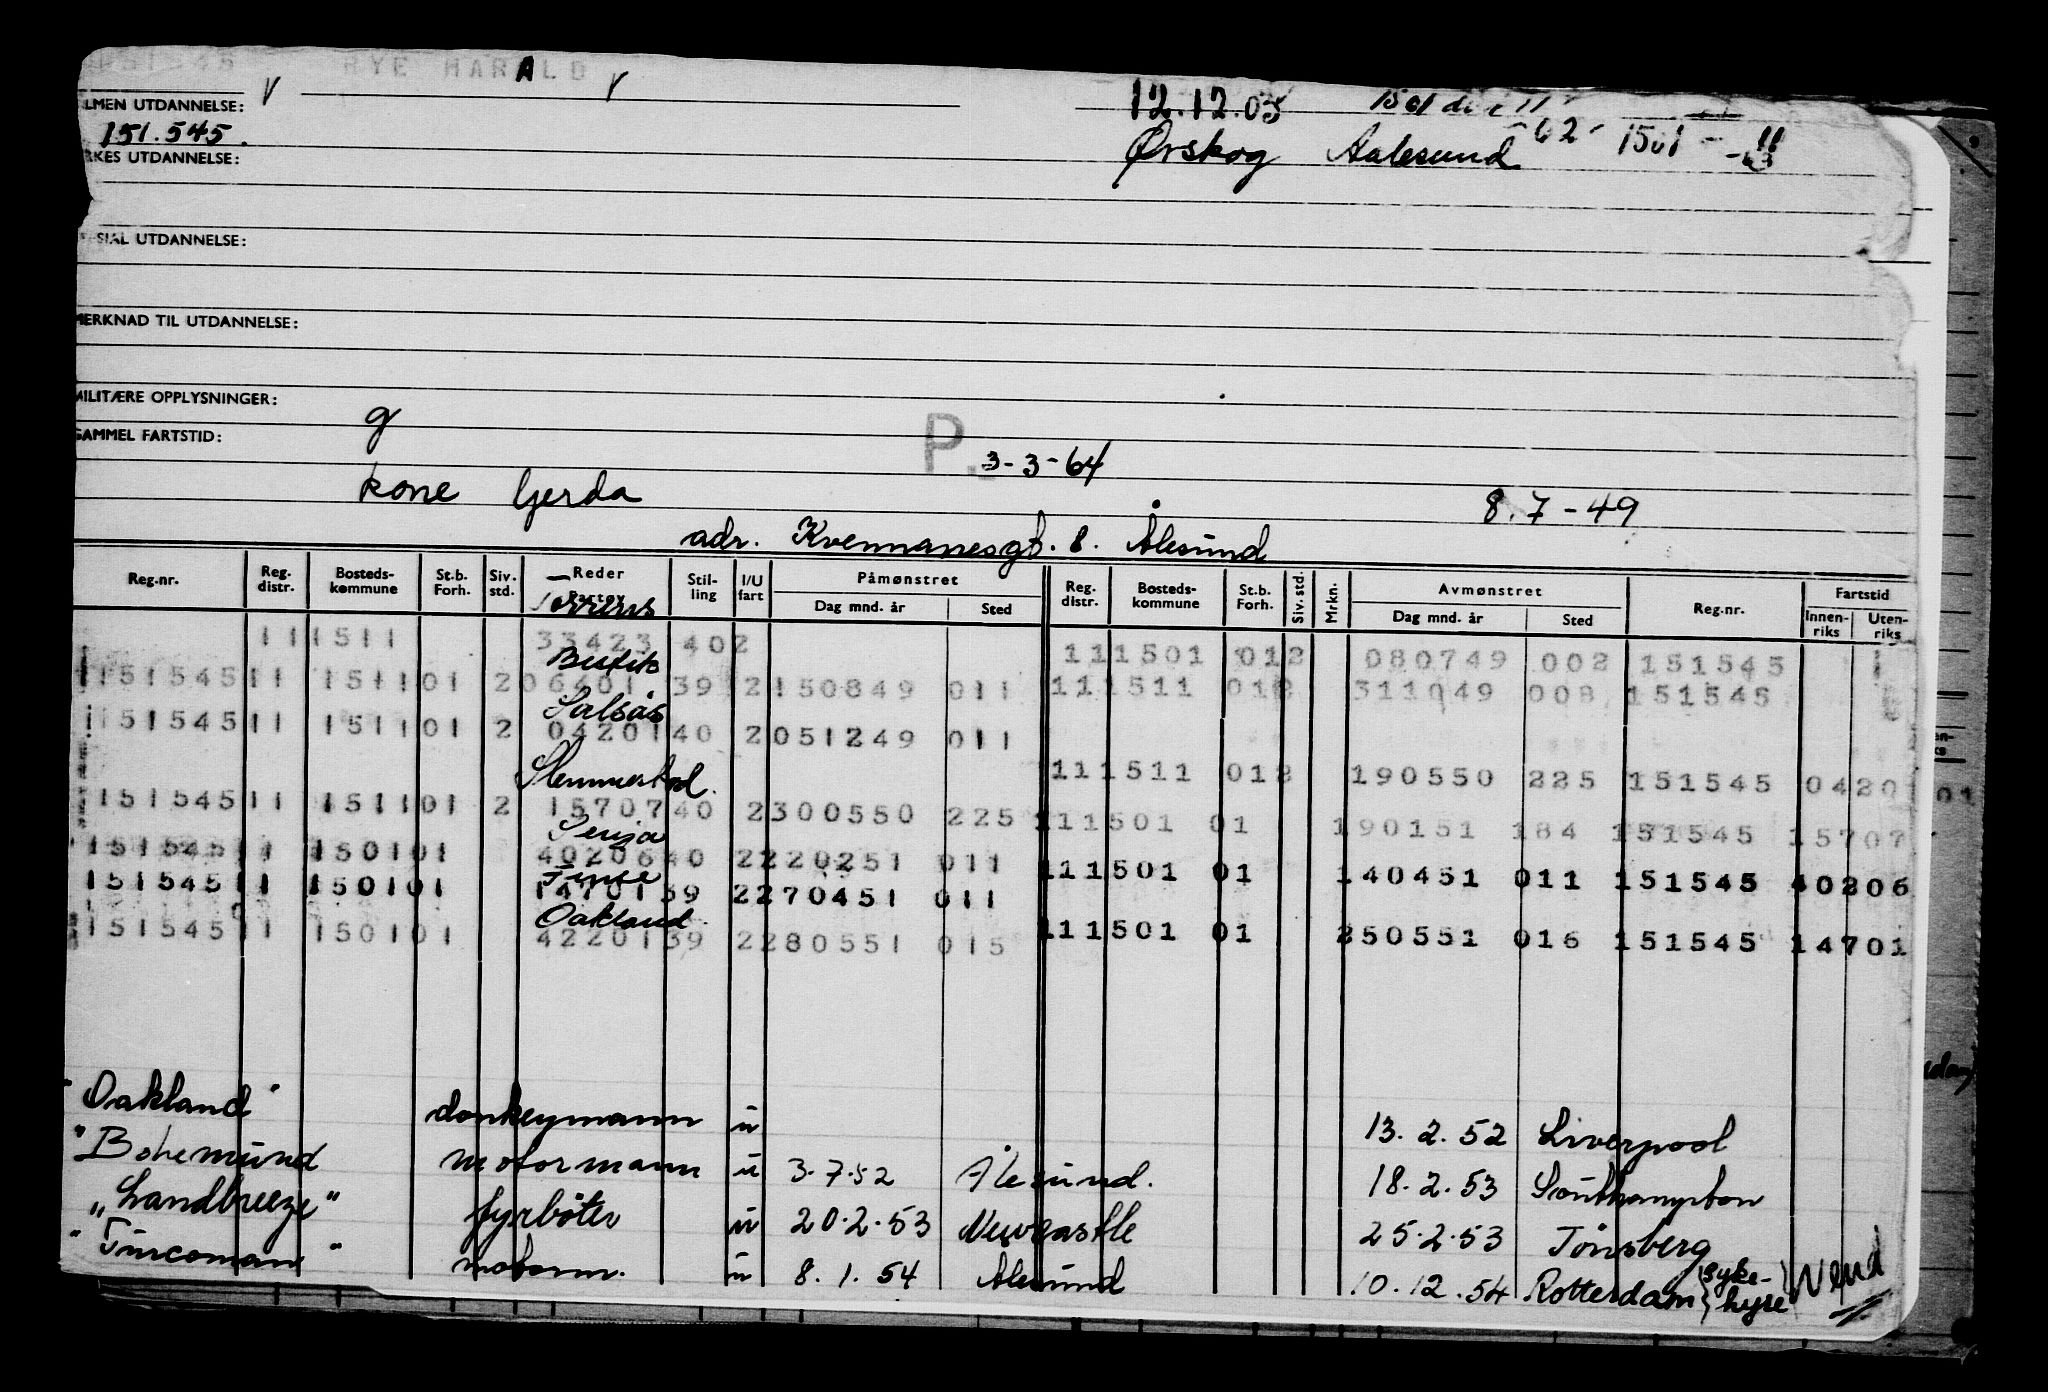 151545 RYE HARALD
LMEN UTDANNELSE: 12.12.05
151.545. Ørskog Aalesund 62 - 1501 - 11
RKES UTDANNELSE: - 63
SIAL UTDANNELSE:
MERKNAD TIL UTDANNELSE:
MILITÆRE OPPLYSNINGER:
g
SAMMEL FARTSTID: P. 3-3-64
kone Gerda 8.7-49
adr. Kvennanesgt. 8. Ålesund
Reg.nr. Reg. distr. Bosteds- kommune St.b. Forh. Siv. std. Reder Fartøy Stil- ling I/U fart Påmønstret Dag mnd. år Sted Reg. distr. Bosteds- kommune St.b. Forh. Siv. std. Mrkn. Avmønstret Dag mnd. år Sted Reg.nr. Fartstid Innen- riks Uten- riks
11 1511 33423 402 111501 012 080749 002 151545
151545 11 1511 01 2 06401 39 2 150849 011 111511 012 311049 008 151545
Salsås
151545 11 1511 01 2 04201 40 2 051249 011
Slemmestad. 111511 012 190550 225 151545 0420
151545 11 1511 01 2 15707 40 2 300550 225 111501 01 190151 184 151545 15707
Senja
151545 11 1501 01 40206 40 2 220251 011 111501 01 140451 011 151545 40206
151545 11 1501 01 14701 39 2 270451 011
Oakland
151545 11 1501 01 42201 39 2 280551 015 111501 01 250551 016 151545 14701
"Oakland" donkeymann u 13.2.52 Liverpool
"Bohemund motormann u 3.7.52 Ålesund. 18.2.53 Southampton
"Landbreeze" fyrbøter u 20.2.53 Newcastle 25.2.53 Tönsberg
"Turcoman" motorm. u 8.1.54 Ålesund 10.12.54 Rotterdam syke- hyre Vend